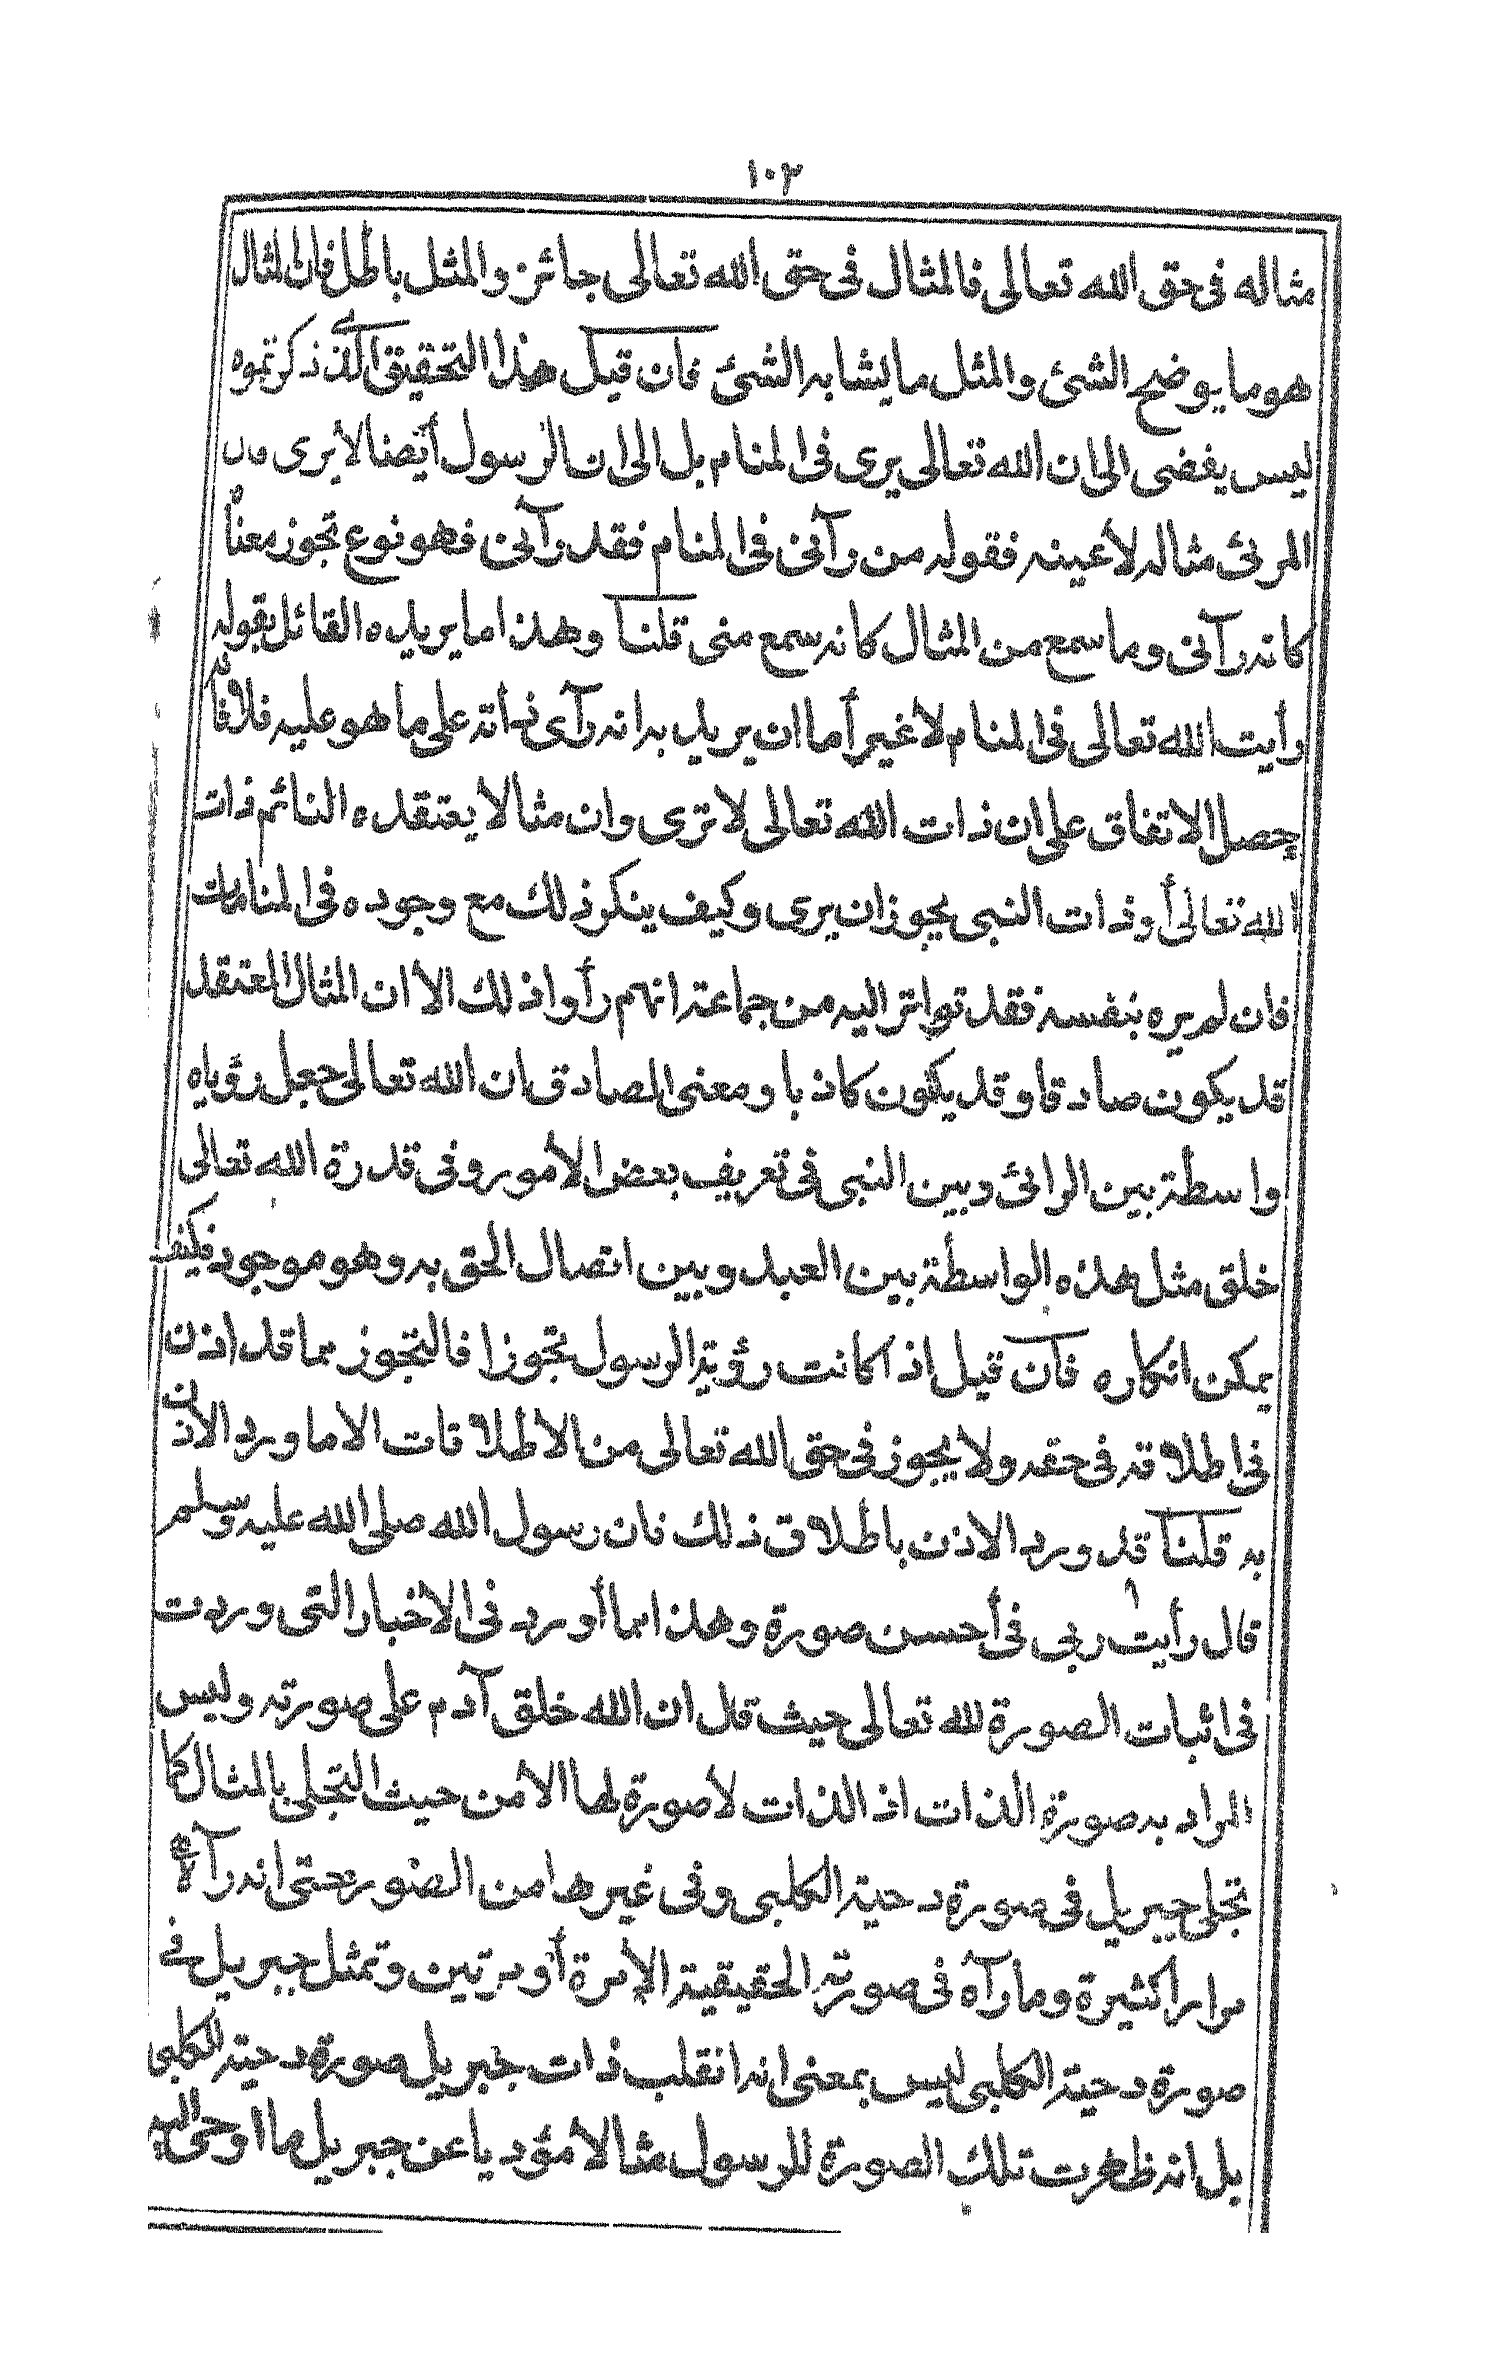 ١٠٢
مثاله فى حق الله تعالى فالمثال فى حق الله تعالى جائز والمثل باطل فان المثال
هو ما يوضح الشئ والمثل ما يشابه الشئ فان قيل هذا التحقيق الذى ذكرتموه
ليس يفضى الى ان الله تعالى يرى فى المنام بل الى ان الرسول أيضا لا يرى فان
المرئى مثاله لا عينه فقوله من رآنى فى المنام فقد رآنى فهو نوع تجوز معناه
كانه رآنى وما سمع من المثال كانه سمع منى قلنا وهذا ما يريده القائل بقوله
رأيت الله تعالى فى المنام لا غير أما ان يريد به انه رآى ذاته على ما هو عليه فلا فانه
حصل الاتفاق على ان ذات الله تعالى لا ترى وان مثالا يعتقده النائم ذات
الله تعالى أو ذات النبى يجوز ان يرى وكيف ينكر ذلك مع وجوده فى المنامات
فان لم يره بنفسه فقد تواتر اليه من جماعة انهم رأوا ذلك الا ان المثال المعتقد
قد يكون صادقا وقد يكون كاذبا ومعنى الصادق ان الله تعالى جعل رؤياه
واسطة بين الرائى وبين النبى فى تعريف بعض الأمور وفى قدرة الله تعالى
خلق مثل هذه الواسطة بين العبد وبين اتصال الحق به وهو موجود فكيف
يمكن انكاره فان قيل اذا كانت رؤية الرسول تجوزا فالتجوز مما قد اذن
فى اطلاقه فى حقه ولا يجوز فى حق الله تعالى من الاطلاقات الا ما ورد الاذن
به قلنا قد ورد الاذن باطلاق ذلك فان رسول الله صلى الله عليه وسلم
قال رأيت ربى فى أحسن صورة وهذا مما أورد فى الاخبار التى وردت
فى اثبات الصورة لله تعالى حيث قال ان الله خلق آدم على صورته وليس
المراد به صورة الذات اذ الذات لا صورة لها الا من حيث التجلى بالمثال كما
تجلى جبريل فى صورة دحية الكلبى وفى غيرها من الصور حتى انه رآه
مرارا كثيرة وما رآه فى صورته الحقيقية الا مرة أو مرتين وتمثل جبريل فى
صورة دحية الكلبى ليس بمعنى انه انقلب ذات جبريل صورة دحية الكلبى
بل انه ظهرت تلك الصورة للرسول مثالا مؤديا عن جبريل ما اوحى اليه